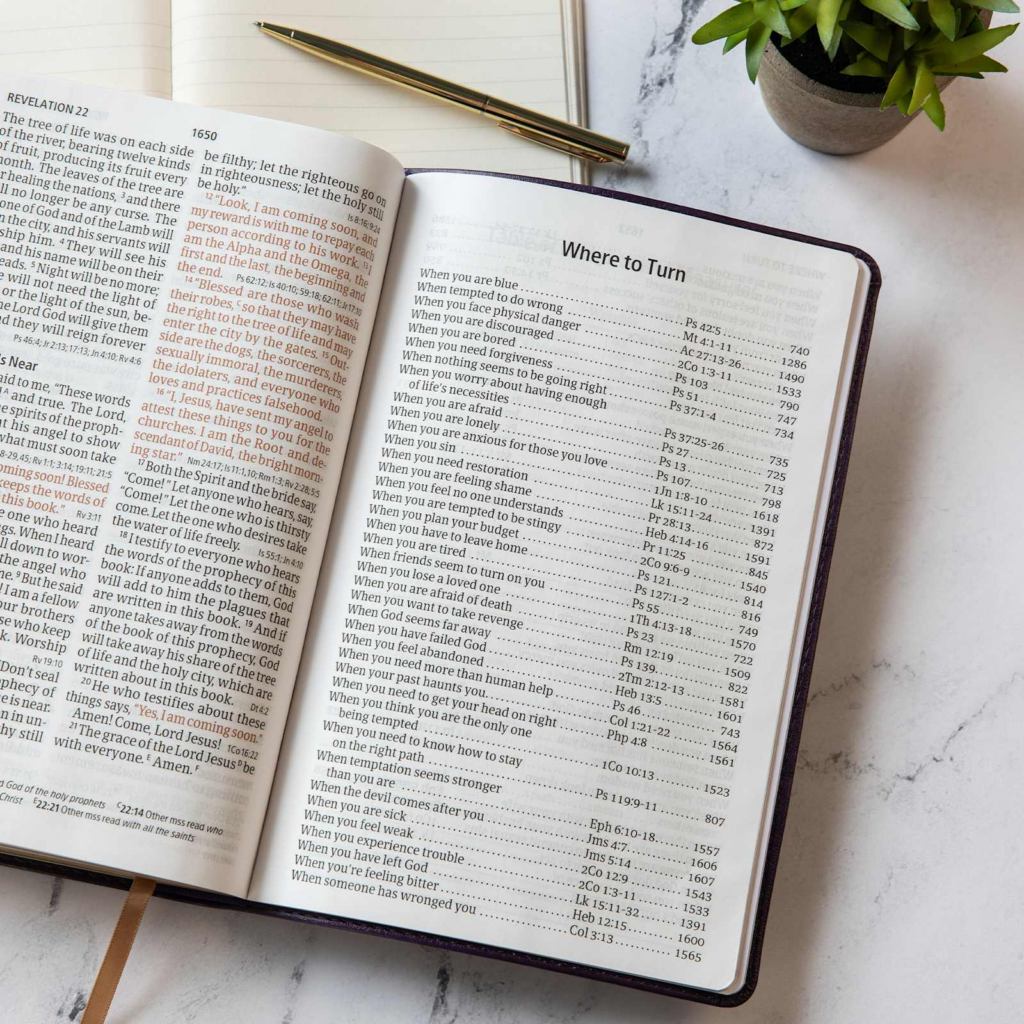 REVELATION 22
1650
The tree of life was on each side
of the river, bearing twelve kinds
of fruit, producing its fruit every
month. The leaves of the tree are
healing the nations, 3 and there
no longer be any curse. The
of God and of the Lamb will
in the city, and his servants will
him. 4 They will see his
and his name will be on their
5 Night will be no more;
will not need the light of
or the light of the sun, be-
Lord God will give them
they will reign forever
Ps 46:4; Jr 2:13; 17:13; Jn 4:10; Rv 4:6
Near
said to me, "These words
and true. The Lord,
spirits of the proph-
his angel to show
what must soon take
coming soon! Blessed
keeps the words of
this book." Rv 3:11
one who heard
When I heard
down to wor-
angel who
9 But he said
I am a fellow
your brothers
who keep
Worship
Rv 19:10
"Don't seal
is near.
in un-
still
be filthy; let the righteous go on
in righteousness; let the holy still
be holy." Is 8:16; 9:24
12 "Look, I am coming soon, and
my reward is with me to repay each
person according to his work. 13 I
am the Alpha and the Omega, the
first and the last, the beginning and
the end. Ps 62:12; Is 40:10; 59:18; 62:11; Jr 17:10
14 "Blessed are those who wash
their robes, C so that they may have
the right to the tree of life and may
enter the city by the gates. 15 Out-
side are the dogs, the sorcerers, the
sexually immoral, the murderers,
the idolaters, and everyone who
loves and practices falsehood.
16 "I, Jesus, have sent my angel to
attest these things to you for the
churches. I am the Root and de-
scendant of David, the bright morn-
ing star." Nm 24:17; Is 11:1,10; Rm 1:3; Rv 2:28; 5:5
17 Both the Spirit and the bride say,
"Come!" Let anyone who hears, say,
"Come!" Let the one who is thirsty
come. Let the one who desires take
the water of life freely. Is 55:1; Jn 4:10
18 I testify to everyone who hears
the words of the prophecy of this
book: If anyone adds to them, God
will add to him the plagues that
are written in this book. 19 And if
anyone takes away from the words
of the book of this prophecy, God
will take away his share of the tree
of life and the holy city, which are
written about in this book. Dt 4:2
20 He who testifies about these
things says, "Yes, I am coming soon."
Amen! Come, Lord Jesus! 1Co 16:22
21 The grace of the Lord Jesus D be
with everyone. E Amen. F
God of the holy prophets C 22:14 Other mss read who
Christ E 22:21 Other mss read with all the saints
Where to Turn
When you are blue ........ Ps 42:5 ........ 740
When tempted to do wrong ........ Mt 4:1-11 ........ 1286
When you face physical danger ........ Ac 27:13-26 ........ 1490
When you are discouraged ........ 2Co 1:3-11 ........ 1533
When you are bored ........ Ps 103 ........ 790
When you need forgiveness ........ Ps 51 ........ 747
When nothing seems to be going right ........ Ps 37:1-4 ........ 734
When you worry about having enough
of life's necessities ........ Ps 37:25-26 ........ 735
When you are afraid ........ Ps 27 ........ 725
When you are lonely ........ Ps 13 ........ 713
When you are anxious for those you love ........ Ps 107 ........ 798
When you sin ........ 1Jn 1:8-10 ........ 1618
When you need restoration ........ Lk 15:11-24 ........ 1391
When you are feeling shame ........ Pr 28:13 ........ 872
When you feel no one understands ........ Heb 4:14-16 ........ 1591
When you are tempted to be stingy ........ Pr 11:25 ........ 845
When you plan your budget ........ 2Co 9:6-9 ........ 1540
When you have to leave home ........ Ps 121 ........ 814
When you are tired ........ Ps 127:1-2 ........ 816
When friends seem to turn on you ........ Ps 55 ........ 749
When you lose a loved one ........ 1Th 4:13-18 ........ 1570
When you are afraid of death ........ Ps 23 ........ 722
When you want to take revenge ........ Rm 12:19 ........ 1509
When God seems far away ........ Ps 139 ........ 822
When you have failed God ........ 2Tm 2:12-13 ........ 1581
When you feel abandoned ........ Heb 13:5 ........ 1601
When you need more than human help ........ Ps 46 ........ 743
When your past haunts you ........ Col 1:21-22 ........ 1564
When you need to get your head on right ........ Php 4:8 ........ 1561
When you think you are the only one
being tempted ........ 1Co 10:13 ........ 1523
When you need to know how to stay
on the right path ........ Ps 119:9-11 ........ 807
When temptation seems stronger
than you are ........ Eph 6:10-18 ........ 1557
When the devil comes after you ........ Jms 4:7 ........ 1606
When you are sick ........ Jms 5:14 ........ 1607
When you feel weak ........ 2Co 12:9 ........ 1543
When you experience trouble ........ 2Co 1:3-11 ........ 1533
When you have left God ........ Lk 15:11-32 ........ 1391
When you're feeling bitter ........ Heb 12:15 ........ 1600
When someone has wronged you ........ Col 3:13 ........ 1565